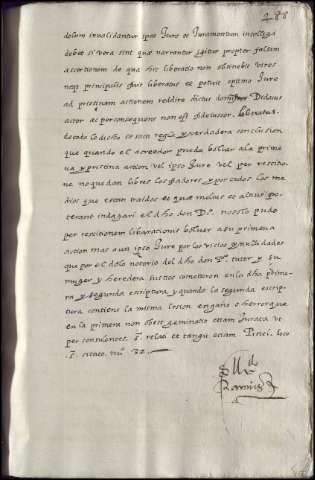 288
dolum invalidantur ipso Jure et Juramentum intelligi
debet si vera sint quæ narrantur igitur propter falsam
assertionem de qua hic liberatio non obtinebit vires
neq; principalis fuit liberatus et potuit optimo Jure
ad pristinam actionem reddire dictus dominus Didacus
actor ac per consequens non est fideiussor liberatus.
de todo lo dicho se saca regla y verdadera conclusion
que quando el acreedor pueda bolver a la prime
ra y pristina action vel ipso Jure vel per restitio
ne no quedan libres los fiadores y por todos los me
dios que estan traidos et quæ melius et altius po
terunt indagari el dho don Dº. no solo pudo
per restitionem liberationis bolver a su primera
action mas aun ipso Jure por los vicios y nulidades
que por el dolo notorio del dho don Pº. tutor y su
muger y heredera suscios cometieron en la dha prime
ra y segunda escriptura y quando la segunda escrip
tura contiene la misma lesion engaño o herror que
en la primera non obest geminatio etiam Jurata ut
per consulentes. relati et tangit etiam Pinel. loco
citato. nu. 32